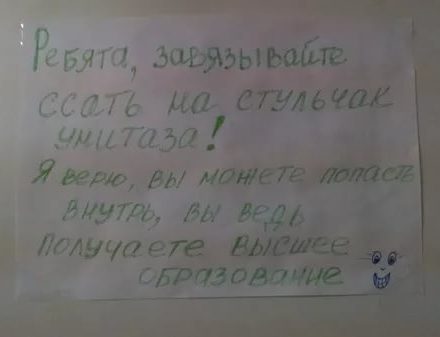 Ребята, завязывайте
ссать на стульчак
унитаза!
Я верю, вы можете попасть
внутрь, вы ведь
получаете высшее
образование